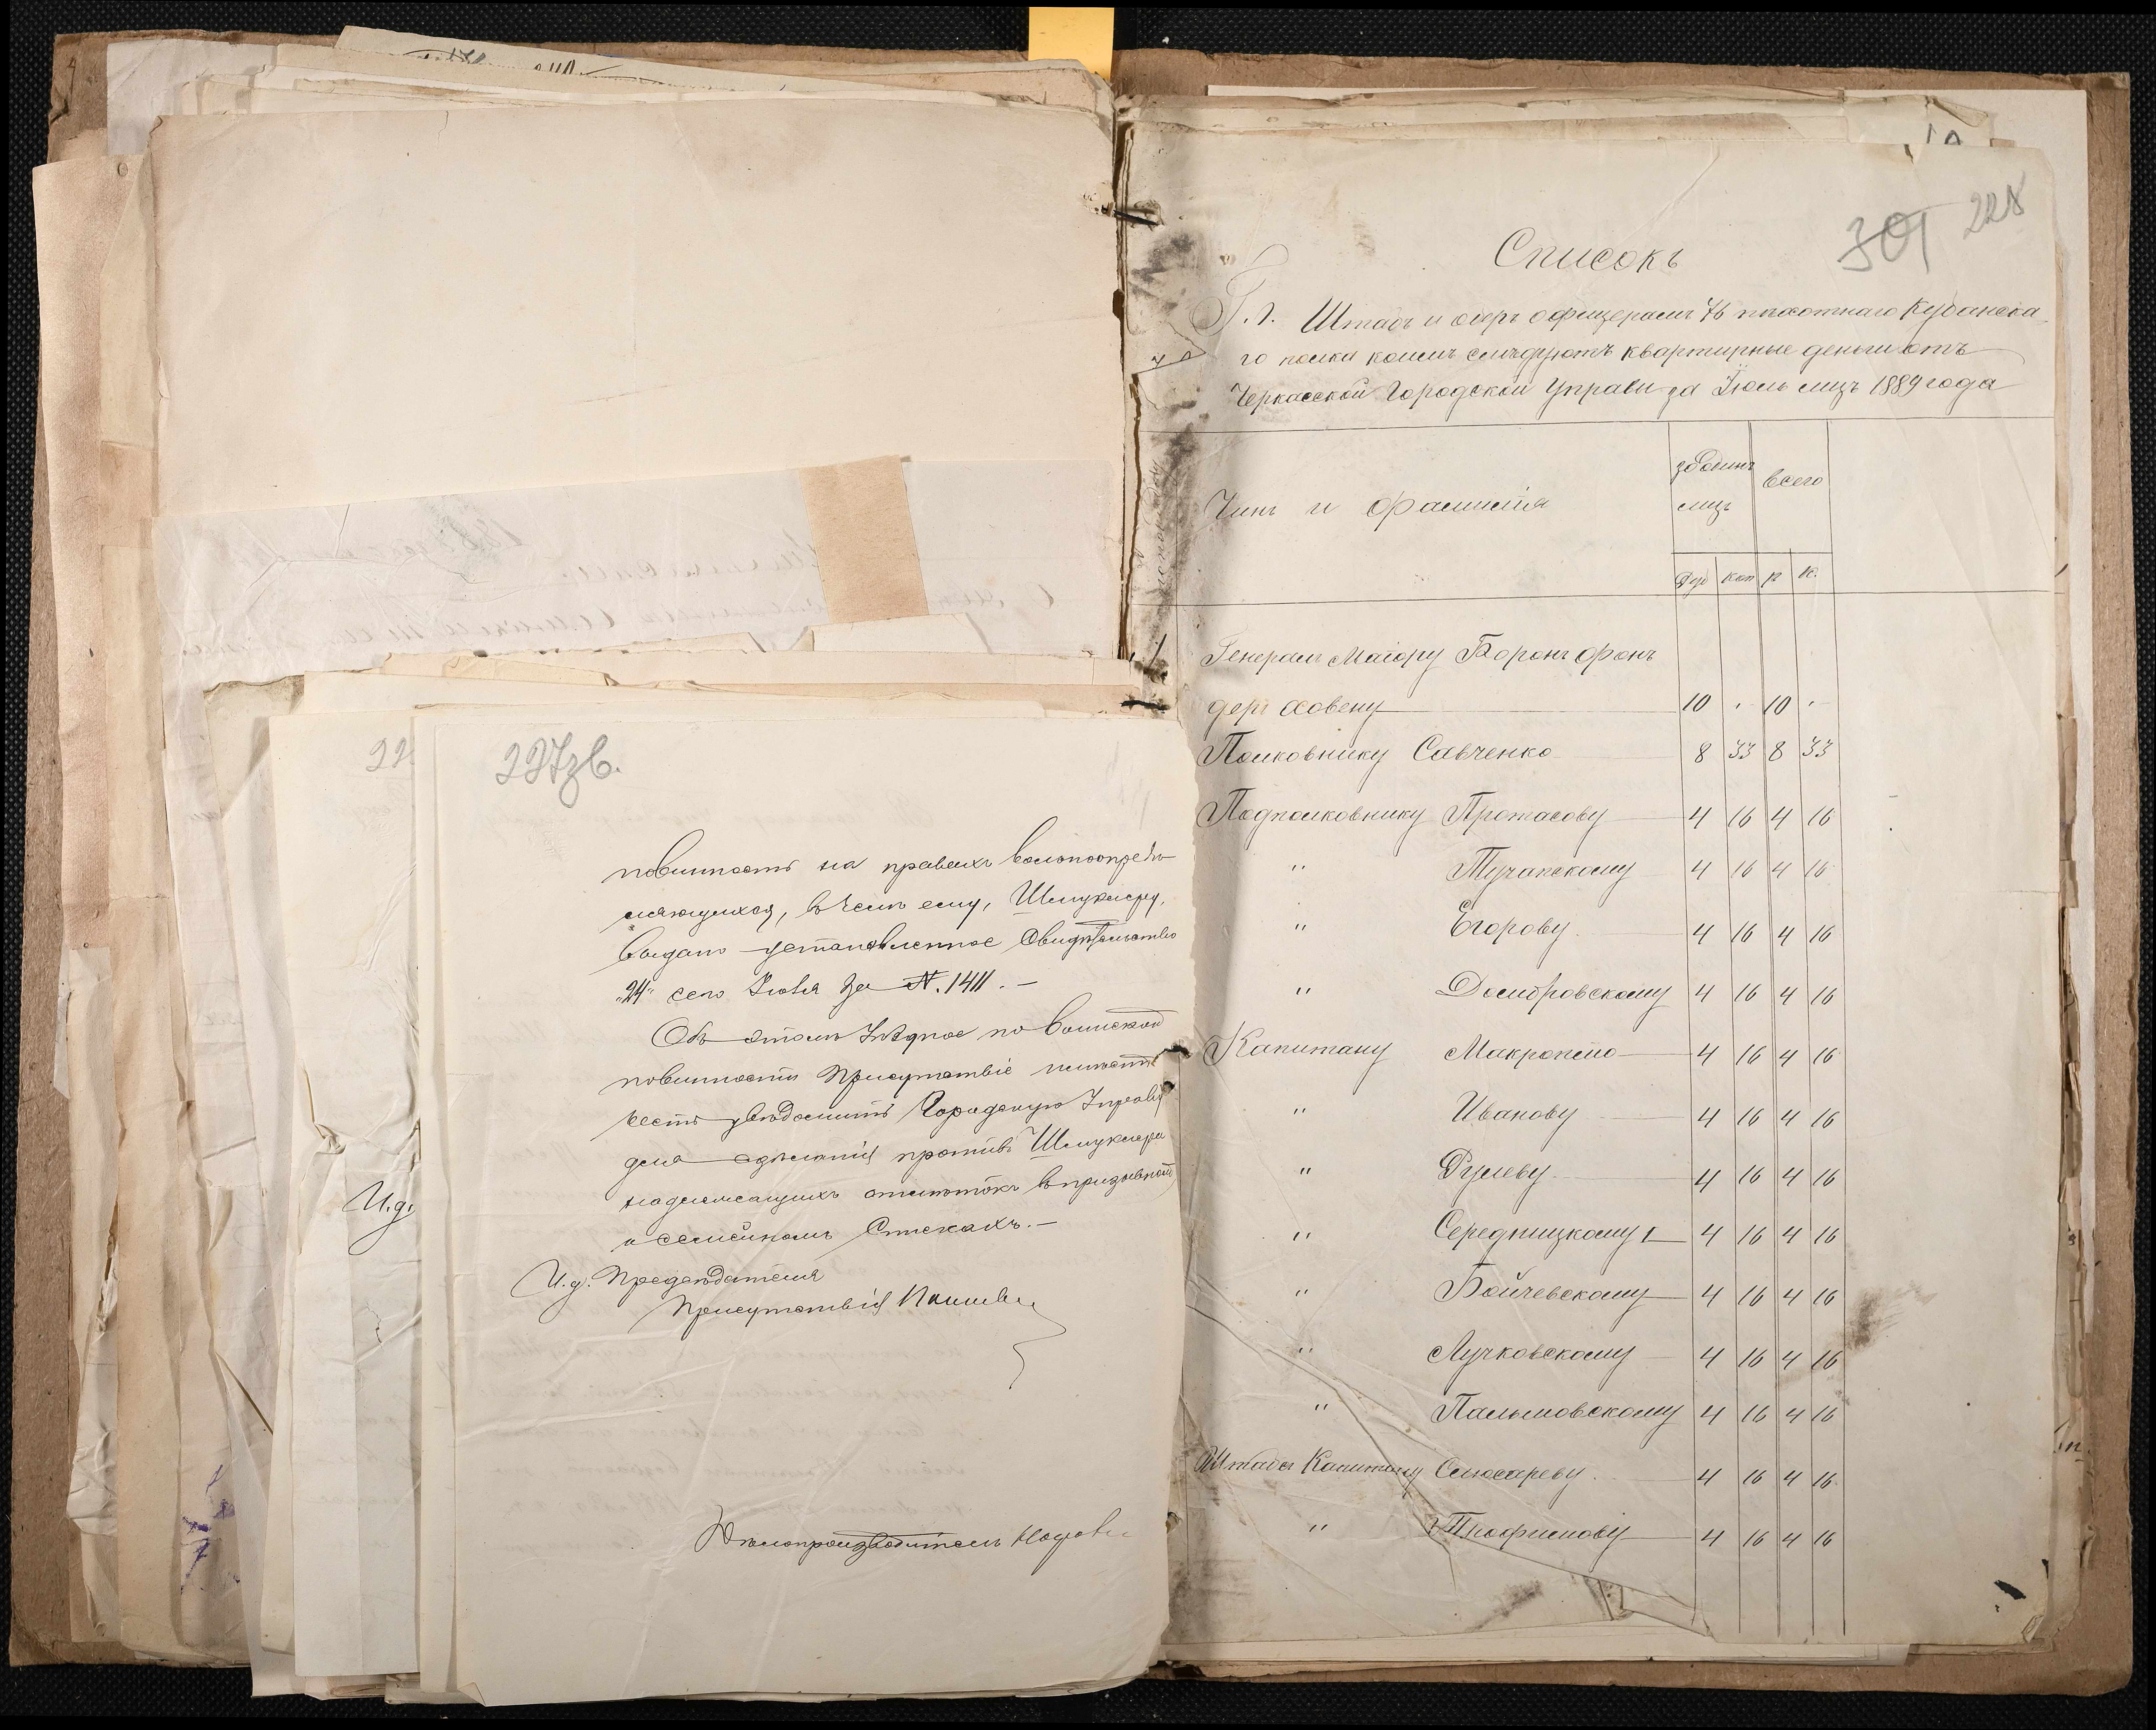 227зв.
повинность на правахъ вольноопредѣ-
ляющихся, въ чемъ ему, Шмуклеру,
выдано установленное свидѣтельство
"24" сего Іюля за N. 1411. –
Объ этомъ Уѣздное по воинской
повинности Присутствіе имѣетъ
честь увѣдомить Городскую Управу
для сдѣланія противъ Шмуклера
надлежащихъ отмѣтокъ въ призывномъ
и семейномъ спискахъ. –
И.д. Предсѣдателя
Присутствія
Дѣлопроизводитель
И.д.
22
301 228
Списокъ
Г.г. Штабъ и оберъ офицерамъ 76 пѣхотнаго Кубанска-
го полка коимъ слѣдуютъ квартирные деньги отъ
Черкасской Городской Управы за Іюль мцъ 1889 года
Чинъ и фамилія
за одинъ мцъ
всего
Руб коп р к.
1 Генералъ Маіору Баронъ фонъ
деръ Ховену 10 . 10 .
Полковнику Савченко 8 33 8 33
Подполковнику Протасову 4 16 4 16
" Тучапскому 4 16 4 16
" Егорову 4 16 4 16
" Домбровскому 4 16 4 16
Капитану Макропсло 4 16 4 16
" Иванову 4 16 4 16
" Рулеву 4 16 4 16
" Середницкому I 4 16 4 16
" Бойчевскому 4 16 4 16
" Лучковскому 4 16 4 16
" Пальмовскому 4 16 4 16
Штабсъ Капитану Слюсареву 4 16 4 16
" Трофимову 4 16 4 16